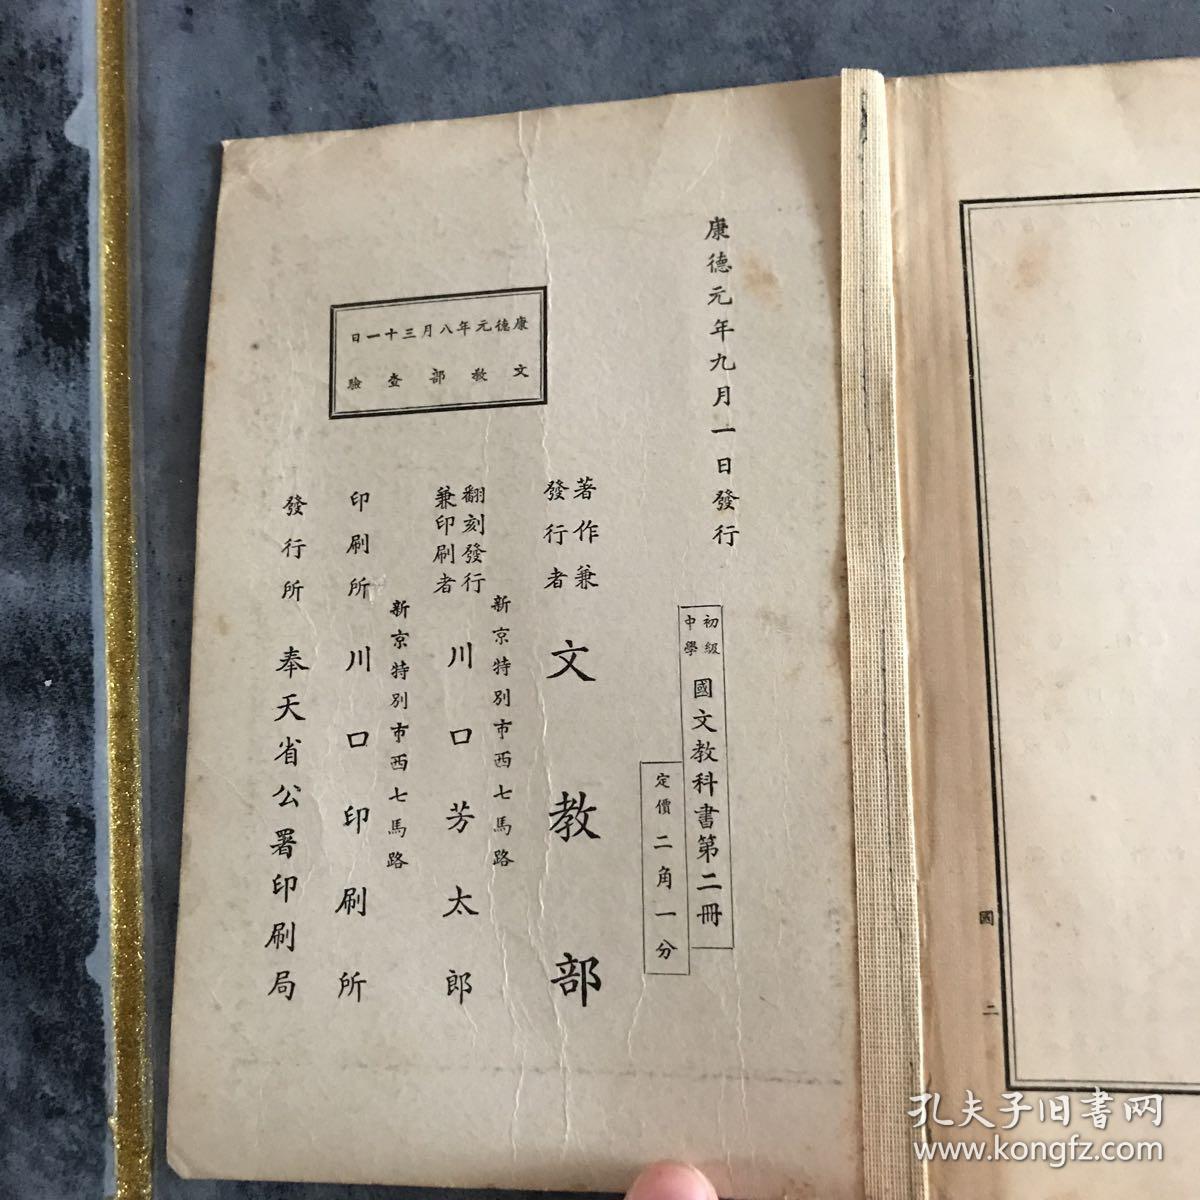 康德元年九月一日發行
初級
中學
國文教科書第二冊
定價二角一分
著作兼
發行者
文教部
新京特別市西七馬路
翻刻發行
兼印刷者
川口芳太郎
新京特別市西七馬路
印刷所
川口印刷所
發行所
奉天省公署印刷局
康德元年八月三十一日
文教部查驗
國 二
孔夫子旧书网
www.kongfz.com